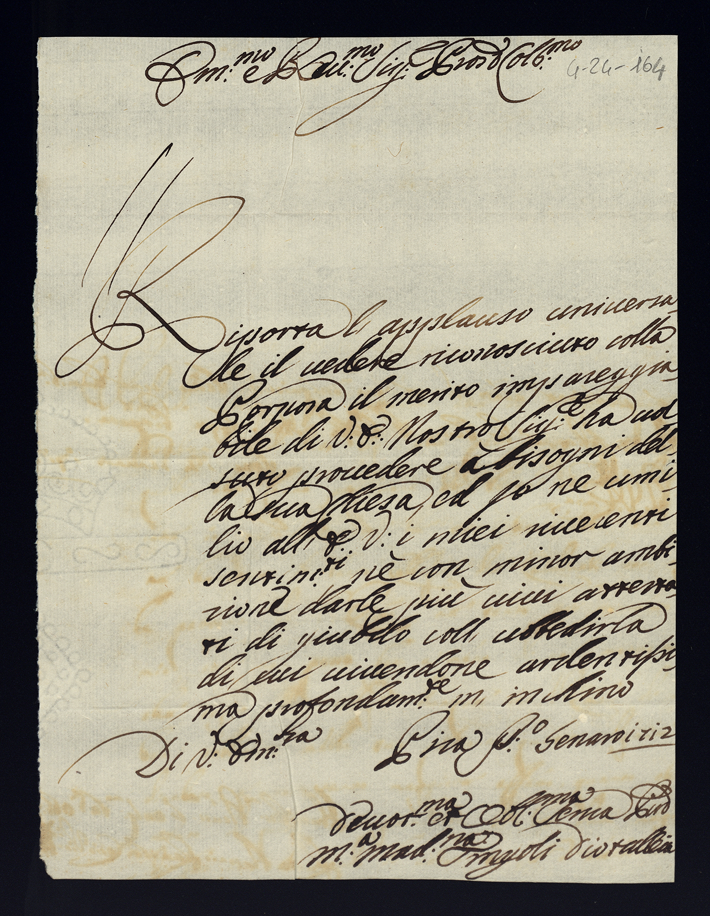 Em:mo e Rev:mo Sig: Prõn Col:mo
4-24-164
Riporta l'applauso universa
le il vedere riconosciuto colla
Porpora il merito impareggia
bile di V: E: Nostro Sig:e ha vol
suto provedere a bisogni del
la sua Chiesa, ed jo ne umi
lio all' E V: i miei riverenti
sentim:ti nè con minor ambi
zione darle più vivi attesta
ti di giubilo coll' ubbedirla
di cui vivendone ardentissi
ma profondam:te m' inchino
Di V: Em:za
Pisa P:o Genaro 1712
devot:ma et Obl:ma Serva
M:a Mad:na